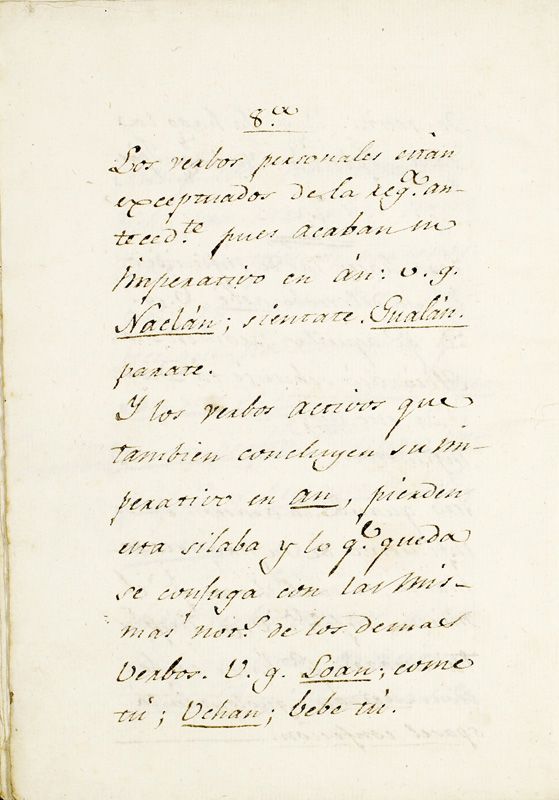 8.ª
Los verbos personales estan
exceptuados de la reg.ª an-
teced.te pues acaban su
imperativo en án: v. g.
Naclán; sientate. Gualán.
parate.
Y los verbos activos que
tambien concluyen su im-
perativo en an, pierden
esta silaba y lo q.e queda
se conjuga con las mis-
mas not.s de los demas
Verbos. V. g. Loan; come
tú; Uchan; bebe tú.